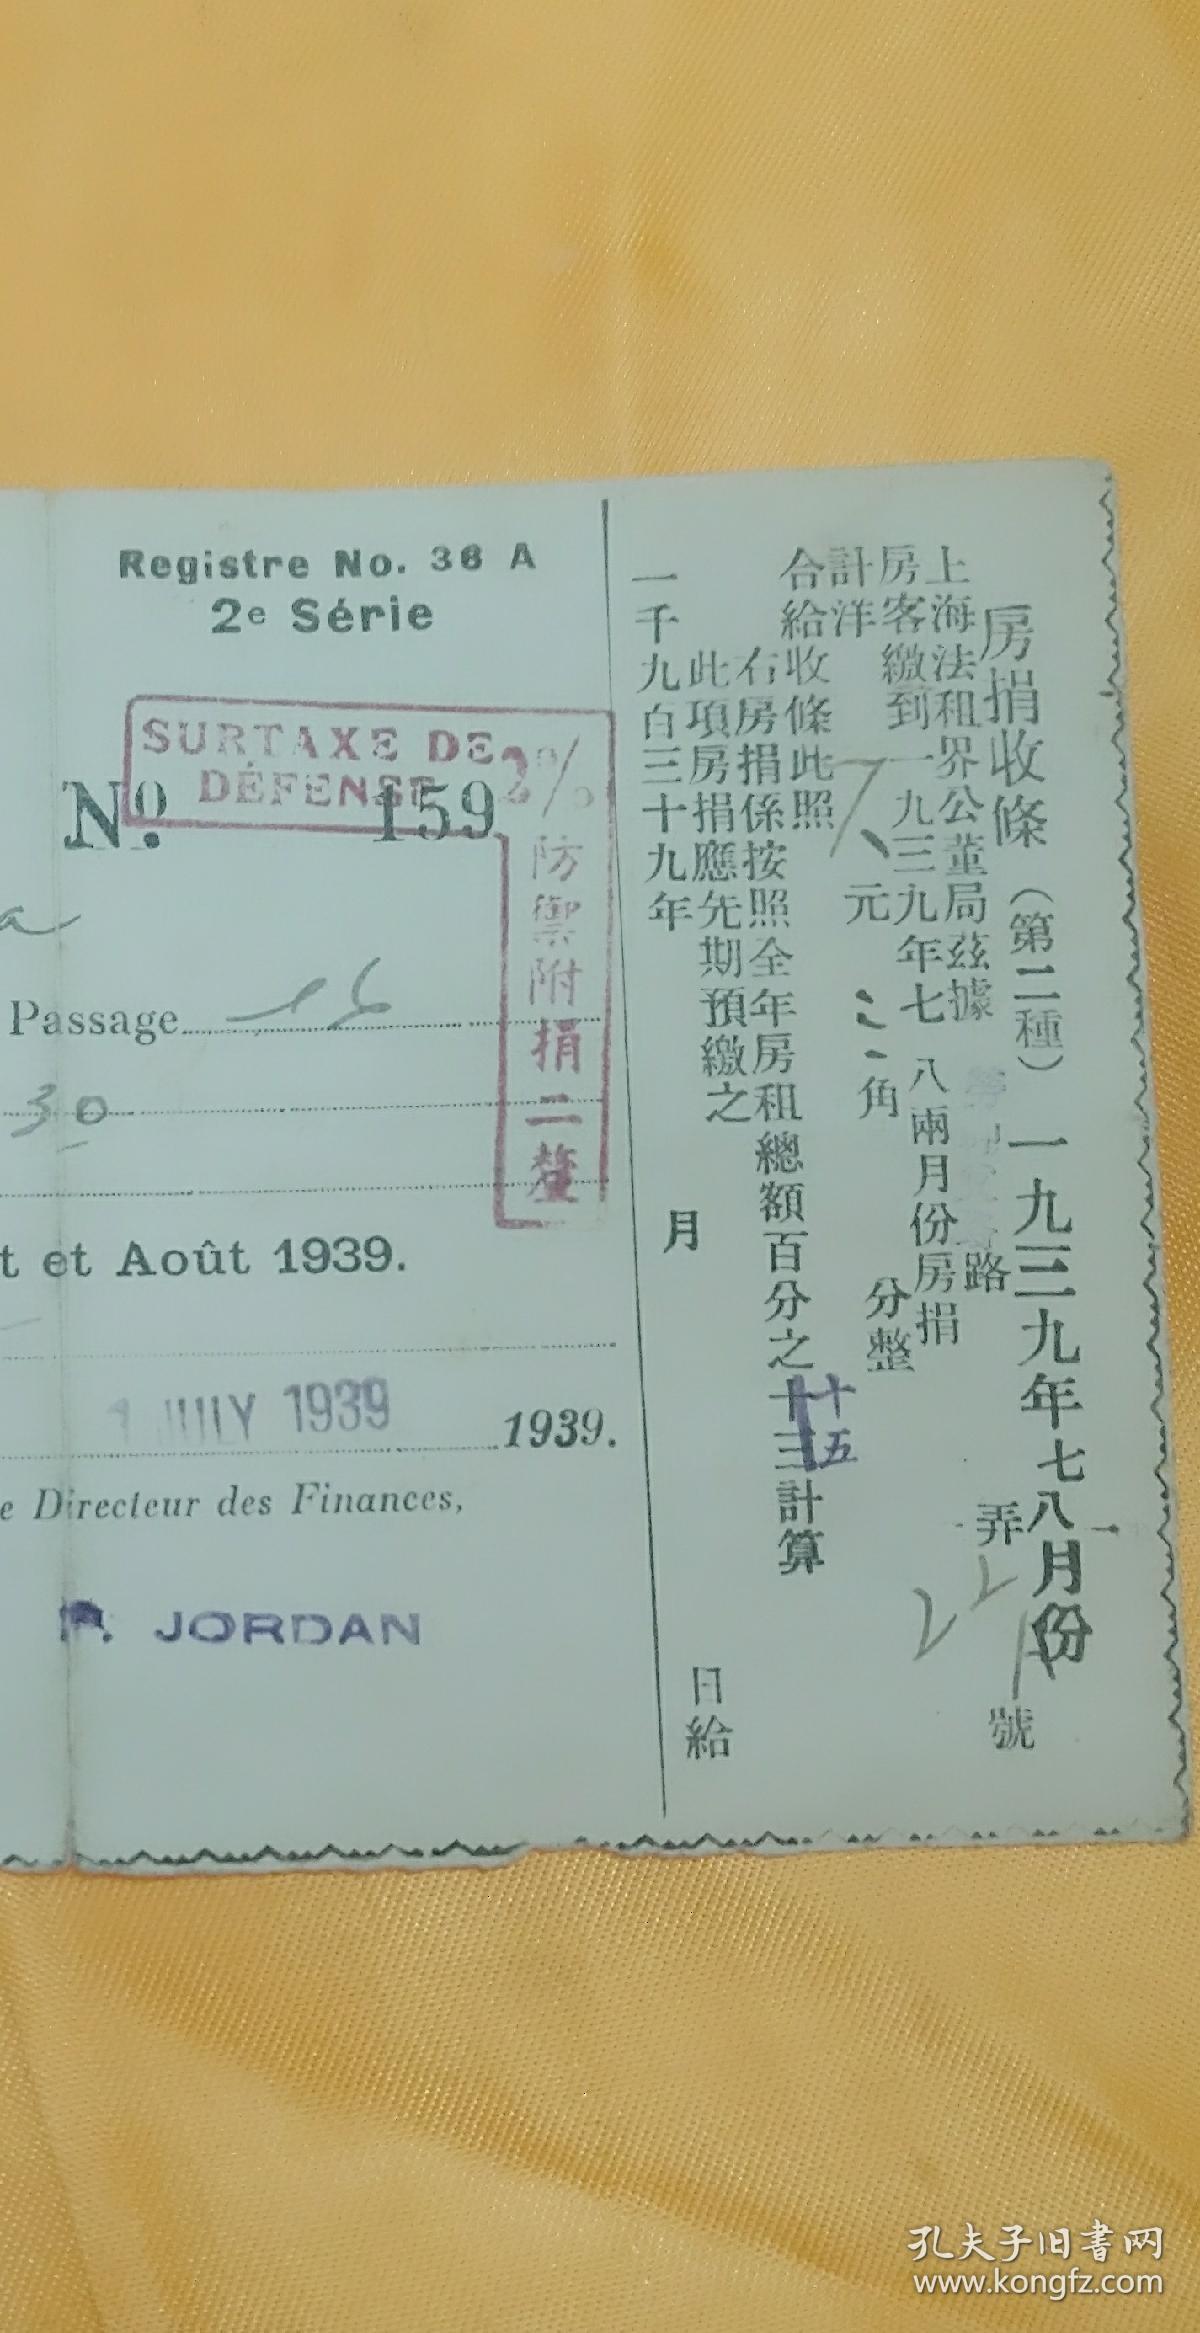 Registre No. 36 A
2e Série
SURTAXE DE
DÉFENSE 2%
防禦附捐二釐
No. 159
Passage
30
t et Août 1939.
JULY 1939
1939.
e Directeur des Finances,
P. JORDAN
房捐收條（第二種）一九三九年七八月份
上海法租界公董局茲據 路 弄 號
房客繳到一九三九年七八兩月份房捐
計洋 元 角 分整
合給收條此照
右房捐係按照全年房租總額百分之十三計算
十五
此項房捐應先期預繳之
一千九百三十九年 月 日給
孔夫子旧书网
www.kongfz.com